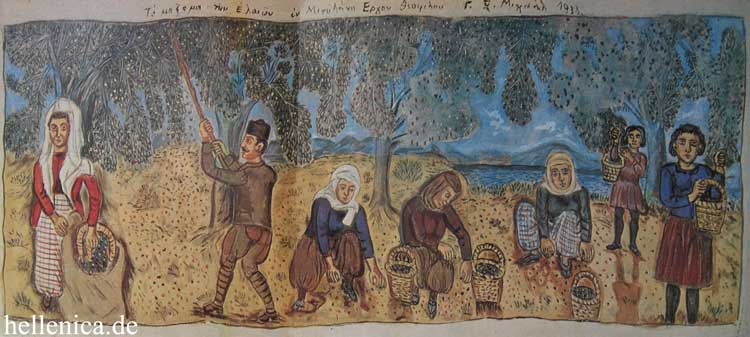 Τὸ μάζομα των Ελαιῶν ἐν Μιτυλήνη Εργον Θεοφίλου Γ. Χ. Μιχαήλ 1933
hellenica.de